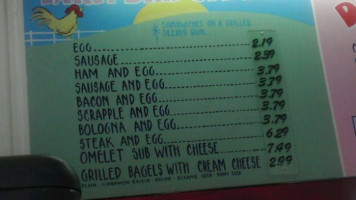 SANDWICHES ON A GRILLED
EGG 2.19
SAUSAGE 2.59
HAM AND EGG 3.79
SAUSAGE AND EGG 3.79
BACON AND EGG 3.79
SCRAPPLE AND EGG 3.79
BOLOGNA AND EGG 3.79
STEAK AND EGG 6.29
OMELET SUB WITH CHEESE 7.49
GRILLED BAGELS WITH CREAM CHEESE 2.99